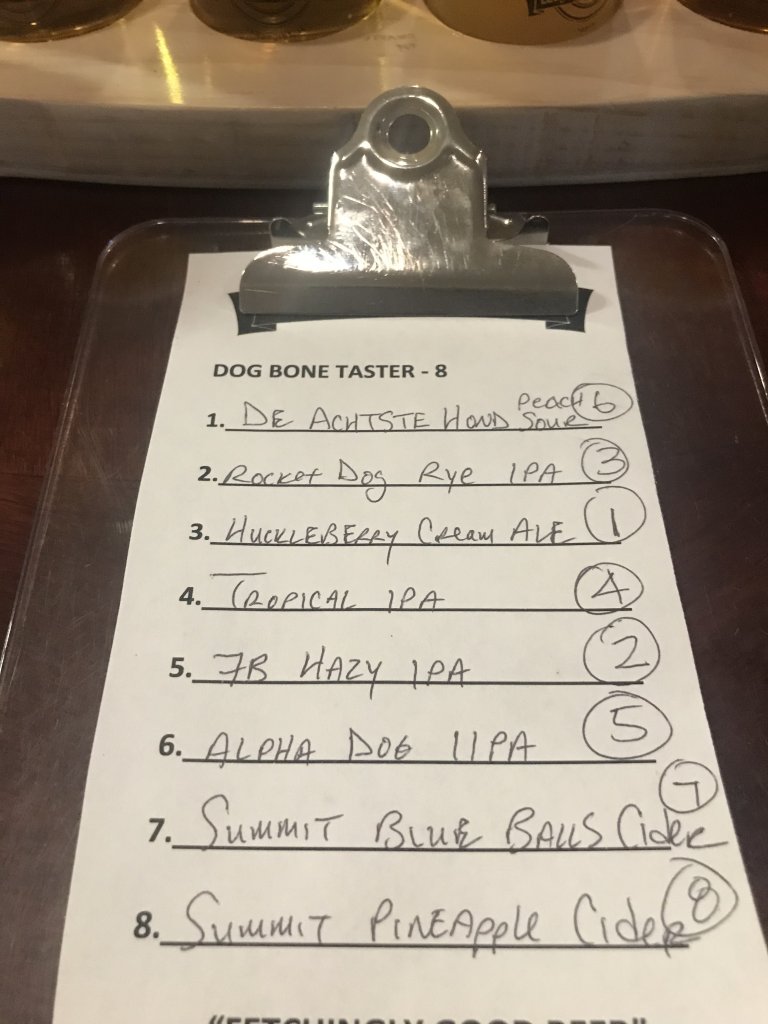 DOG BONE TASTER - 8
1. DE ACHTSTE HOND Peach Sour 6
2. Rocket Dog Rye IPA 3
3. HUCKLEBERRY Cream ALE 1
4. TROPICAL IPA 4
5. 7B HAZY IPA 2
6. ALPHA DOG IIPA 5
7. SUMMIT BLUE BALLS Cider 7
8. SUMMIT PINEApple Cider 8
"FETCHINGLY GOOD BEER"